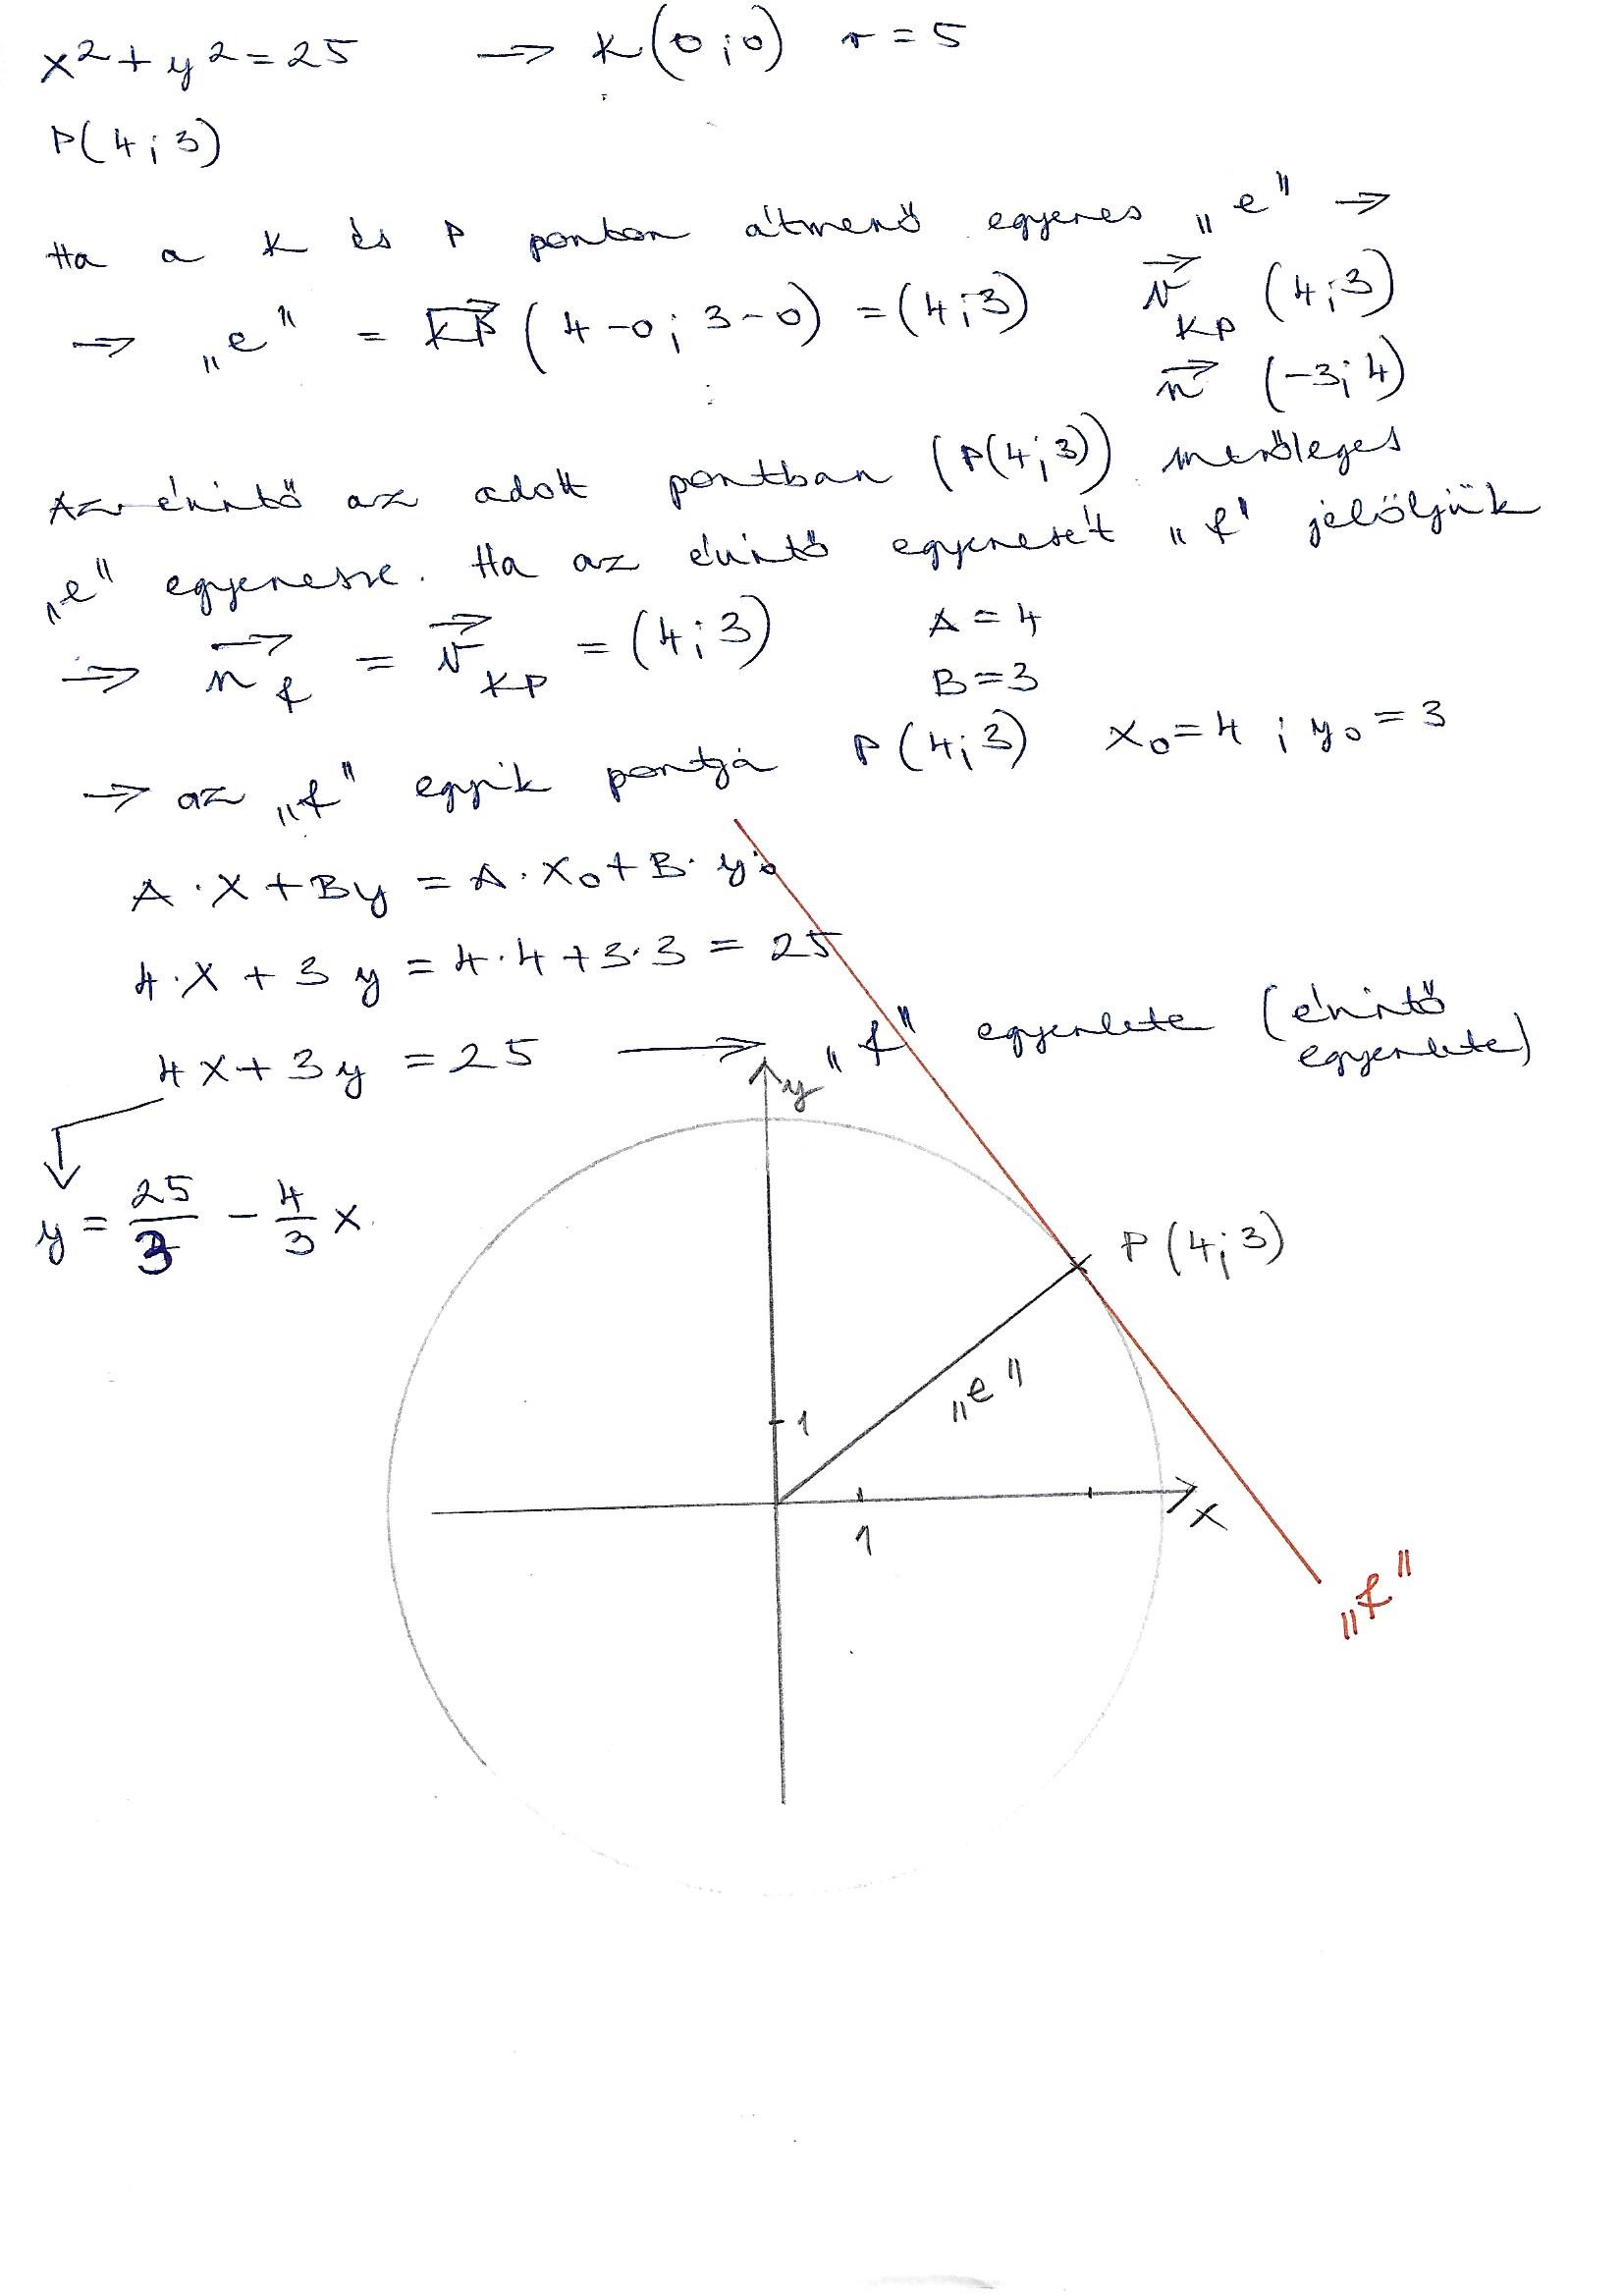 x² + y² = 25 → K(0;0) r = 5
P(4;3)
Ha a K és P ponton átmenő egyenes „e" →
→ „e" = KP→ (4-0; 3-0) = (4;3) v→KP (4;3)
n→ (-3;4)
Az érintő az adott pontban (P(4;3)) merőleges
„e" egyenesre. Ha az érintő egyenesét „f" jelöljük
→ n→f = v→KP = (4;3) A = 4
B = 3
→ az „f" egyik pontja P(4;3) x₀ = 4 ; y₀ = 3
A·x + By = A·x₀ + B·y₀
4·x + 3y = 4·4 + 3·3 = 25
4x + 3y = 25 → „f" egyenlete (érintő
egyenlete)
y
y = 25/3 - 4/3 x
P(4;3)
„e"
1
x
1
„f"